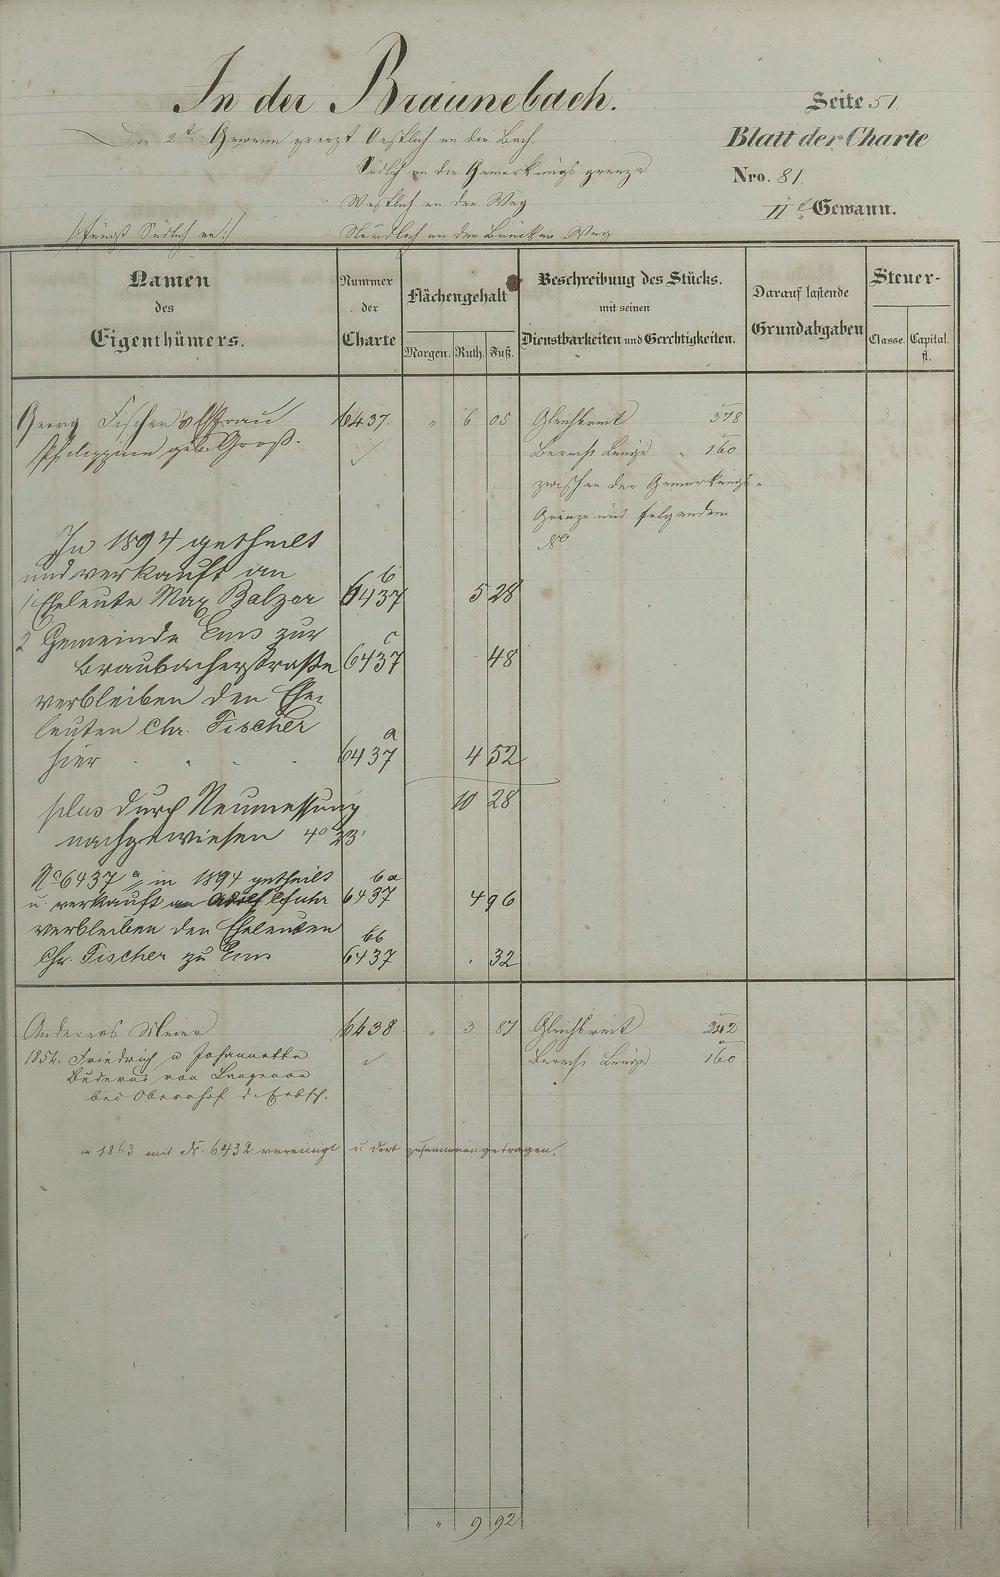 In der Braunebach.
Seite 51.
Die 2te Gewann grenzt Oestlich an die Bach
Blatt der Charte
Südlich an die Gemarkungs grenze
Nro. 81.
Westlich an den Weg
IIte Gewann.
/:fängt Südlich an:/
Nördlich an den Weg
Namen des Eigenthümers.
Nummer der Charte
Flächengehalt
Morgen. Ruth. Fuß.
Beschreibung des Stücks.
mit seinen
Dienstbarkeiten und Gerechtigkeiten.
Darauf lastende
Grundabgaben
Steuer-
Classe. Capital.
fl.
Georg Fischer's Frau 6437. " 6 05 Gleichbreit 378
Philippine geb. Groß. Länge 160
zwischen der Gemarkungs-
Grenze und folgendem
No
In 1894 getheilt
und verkauft an
1. Eheleute Max Balzer 6437 b 5 28
2 Gemeinde Ems zur
Braubacherstraße 6437 c 48
verbleiben den Ehe-
leuten Chr. Fischer
hier 6437 a 4 52
10 28
plus durch Neumessung
nachgewiesen 4° 23'
No 6437 a in 1894 getheilt
u. verkauft an Adolf 6437 ba 4 96
verbleiben den Eheleuten
Chr. Fischer zu Ems 6437 bb . 32
Andreas Meier 6438 " 3 87 Gleichbreit 242
1854. Friedrich u Johannette Länge 160
Buderus von Langenau
bei Obernhof d. Erbsch.
in 1863 mit No. 6432 vereinigt u dort zusammengetragen.
" 9 92